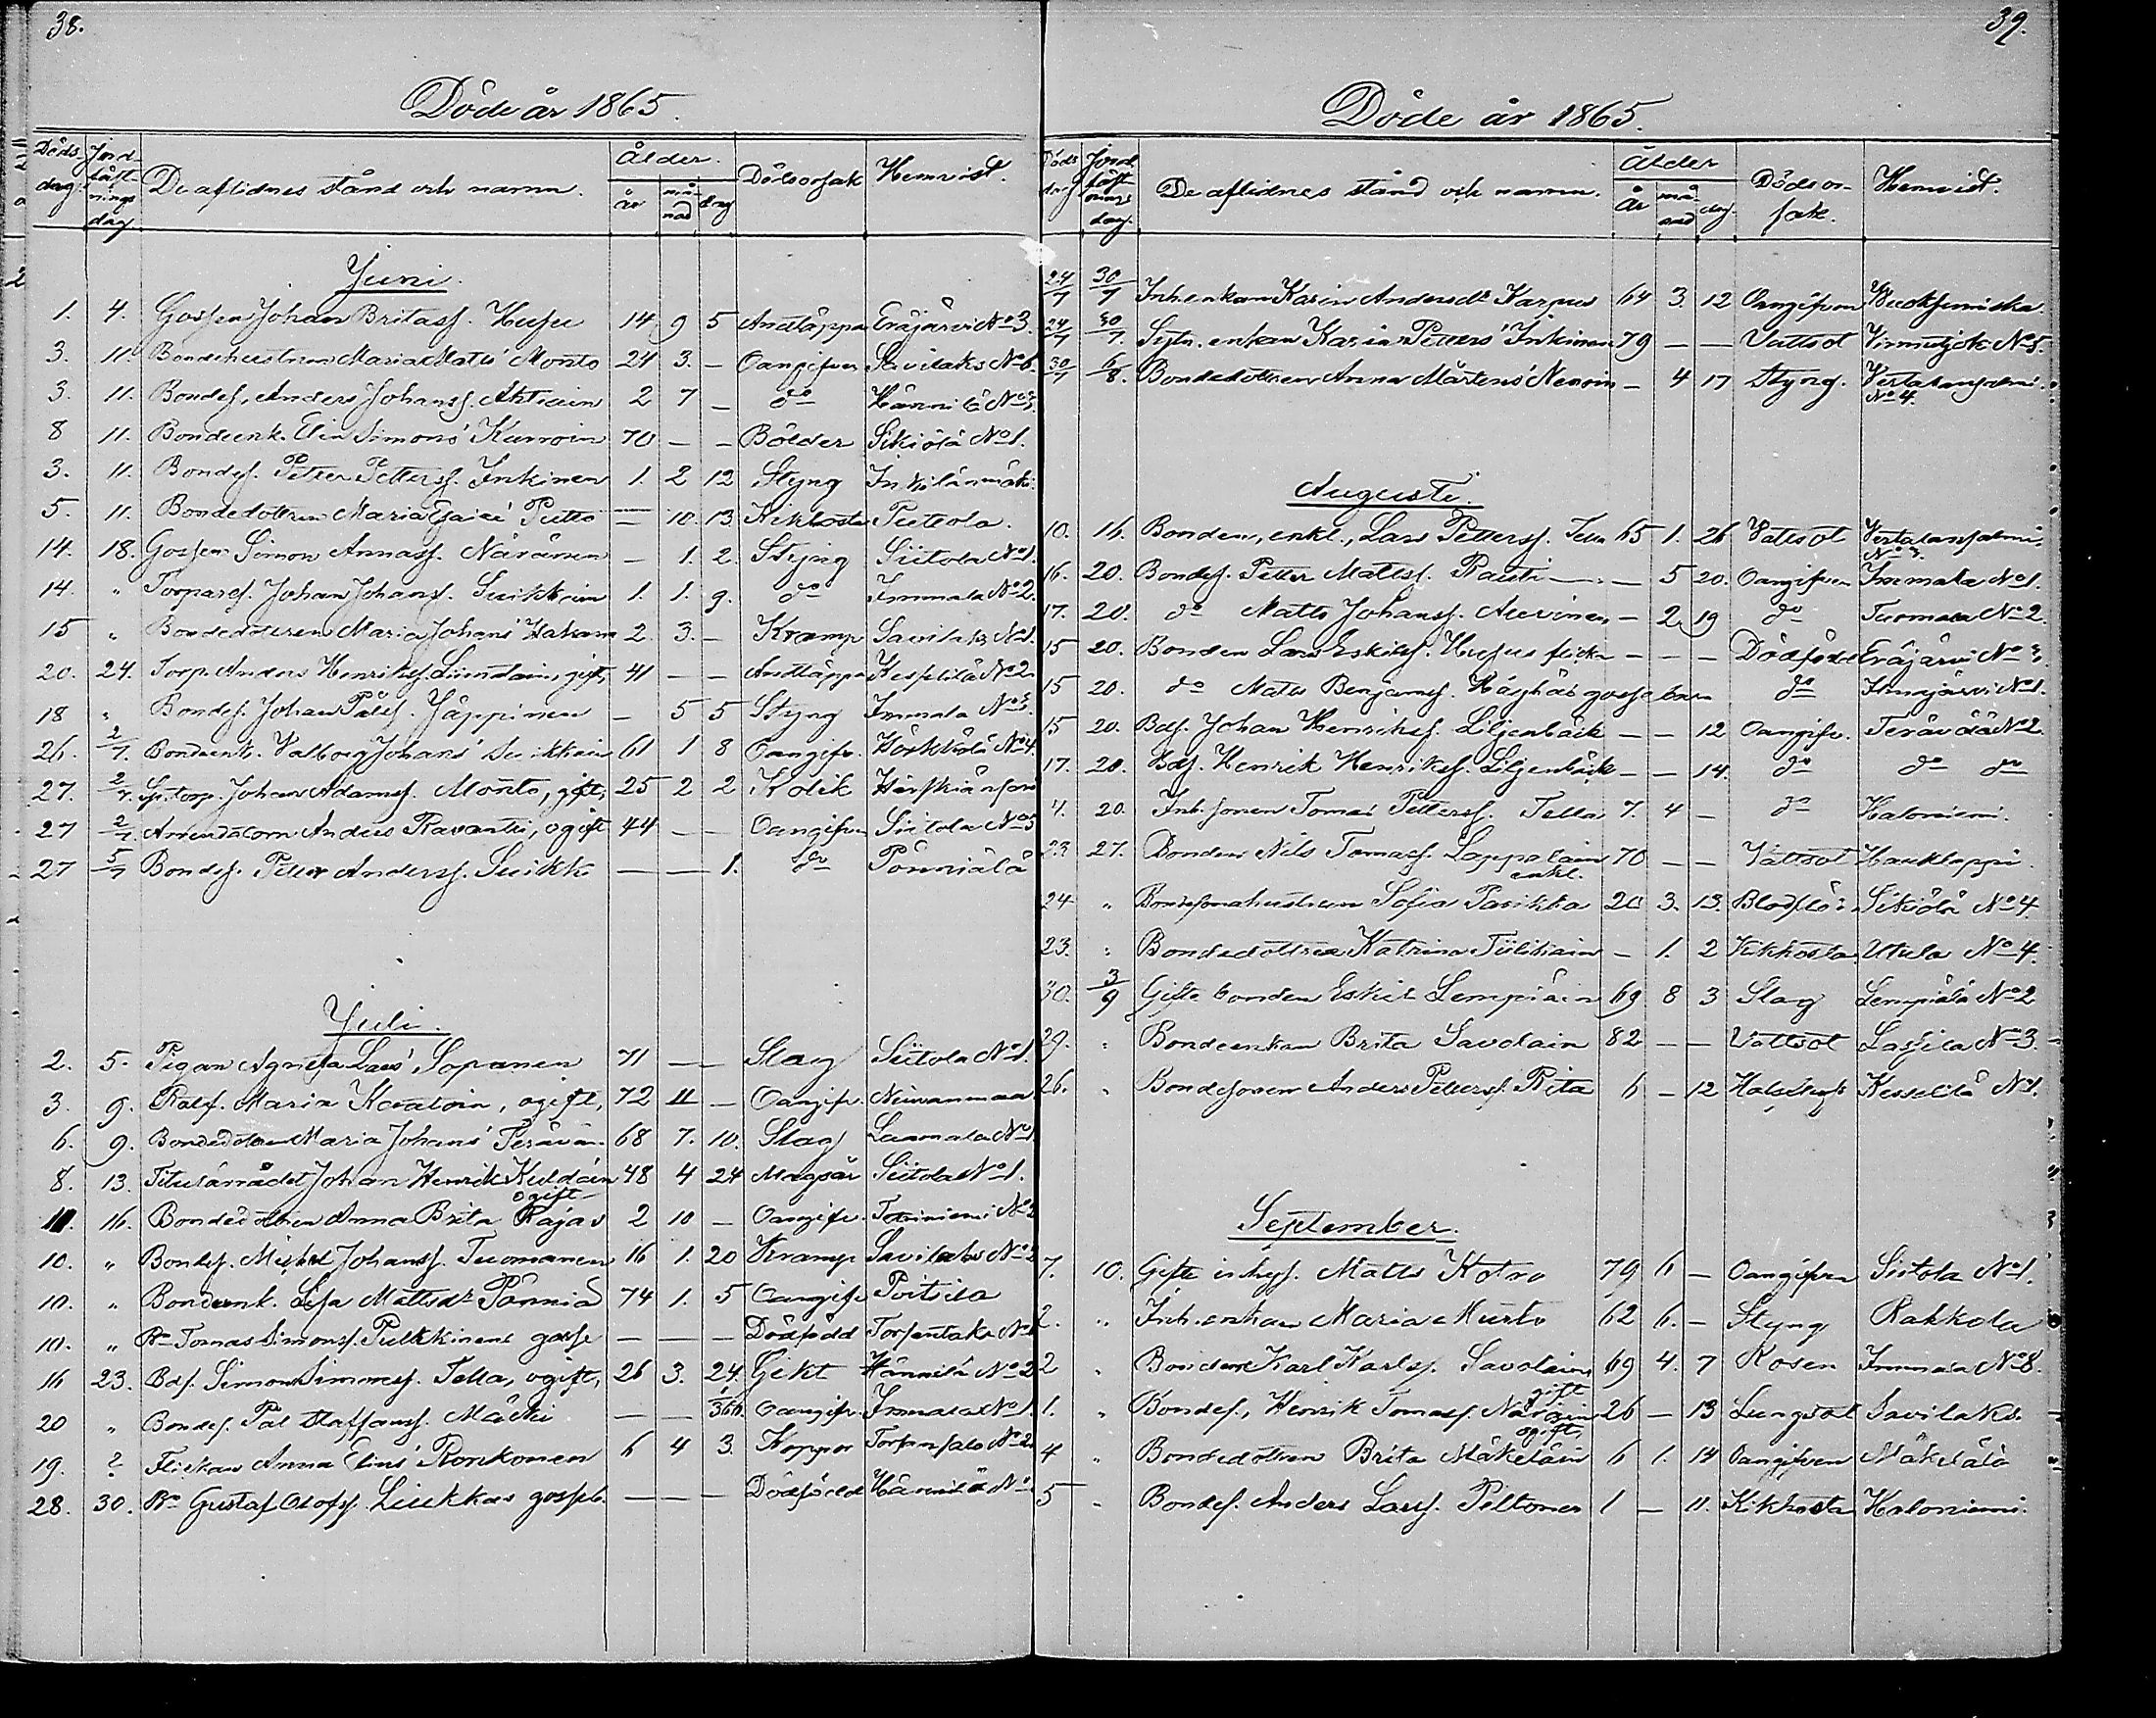 38.
Döde år 1865.
Döds- dag. Jordfästnings dag De aflidnes stånd och namn. Ålder. år månad dag Dödsorsak Hemvist.
Juni.
1. 4. Gossen Johan Britass. Husu 14 9 5 Andtäppa Eräjärvi No 3.
3. 11. Bondehustrun Maria Matts' Monto 24 3. — Oangifven Savilaks No 6.
3. 11. Bondes. Anders Johanss. Ahtiain 2 7 — do Hännilä No 3.
8 11. Bondeenk. Elin Simons' Kurroin 70 — — Bölder Sikiölä No 1.
3. 11. Bondes. Petter Petterss. Inkinen 1. 2 12 Styng Inkilänmäki
5. 11. Bondedottren Maria Esaias' Putto — 10. 13. Kikhosta Puteola.
14. 18. Gossen Simon Annass. Näränen — 1. 2. Styng Siitola No 1.
14. " Torpares. Johan Johanss. Suikkain 1. 1. 9. do Immala No 2.
15 " Bondedottren Maria Johans' Hakana 2. 3. — Kramp Savilaks No 1.
20. 24. Torp. Anders Henrikss. gift, 41 — — Andtäppa Kesselilä No 2.
18 " Bondes. Johan Påls. Jäppinen — 5 5 Styng Immala No 3.
26. 2/7. Bondeenk. Valborg Johans' Suikkain 61 1 8 Oangifv. No 4.
27. 2/7. Johan Adamss. Monto, gift, 25 2 2 Kolik
27 2/7 Anders Ravantti, ogift 44 — — Oangifven Siitola No 5
27 5/7 Bondes. Petter Anderss. Suikk. — — 1. do Pönniälä
Juli.
2. 5. Pigan Agneta Lars' Sopanen 71 — — Slag Siitola No 1.
3. 9. Maria ogift, 72 11 — Oangifv. Niivanmaa
6. 9. Bondedottren Maria Johans' Terävä 68 7. 10. Slag Lammala No 1.
8. 13. Titulärrådet Johan Henrik Kuldain ogift 48 4 24 Magsår Siitola No 1.
11. 16. Bondedottren Anna Brita Rajas 2 10 — Oangifv. No 2
10. " Bondes. Michel Johanss. Tuomanen 16 1. 20 Kramp Savilaks No 2
10. " Bondeenk. Lisa Mattsdr Pönniä 74 1. 5 Oangifv.
10. " Bn Tomas Simonss. Pulkkinens gosse — — — Dödfödd
16 23. Bds. Simon Simonss. Tella, ogift, 26 3. 24. Gikt Hännilä No 2
20 " Bondes. Pål Staffanss. — — Oangifv. Immala No 1.
19. ? Flickan Anna Elins' Ronkonen 6 4 3. Koppor Torsansalo No 2.
28. 30. Bn Gustaf Olofss. Liukkas gosseb. — — — Dödfödd Hännilä No
39.
Döde år 1865.
Döds dag Jordfästnings dag. De aflidnes stånd och namn. Ålder år månad dag. Dödsorsak. Hemvist.
24/7 30/7 Inh.enkan Karin Andersdr Karpus 64 3. 12 Oangifven Vuoksenniska.
24/7 30/7. Sytn. enkan Karin Petters' Inkinen 79 — — Vattsot Virmutjoki No 5.
30/7 6/8. Bondedottren Anna Mårtens' — 4 17 Styng.
No 4.
Augusti.
10. 16. Bonden, enkl., Lars Petterss. Tella 65 1. 26 Vattsot
16. 20. Bondes. Petter Mattss. Rauti — 5 20. Oangifven Immala No 1.
17. 20. do Matts Johanss. Auvinen — 2 19 do Tuomala No 2.
15 20. Bonden Lars Eskilss. Husus flicka — — — Dödfödd Eräjärvi No 3.
15 20. do Matts Benjamss. gossebarn do Immajärvi No 1.
15 20. Bds. Johan Henrikss. Liljenbäck — — 12 Oangifv. Teräväälä No 2
17. 20. Bds. Henrik Henrikss. Liljenbäck — — 14. do do do
4. 20. Inh. sonen Tomas Petterss. Tella 7. 4 — do Haloniemi.
23 27. Bonden Nils Tomass. Lappalain enkl. 70 — — Vattsot Hauklappi
24 " Bondesonahustrun Sofia Parikka 20 3. 13. Sikiölä No 4
23. " Bondedottren Katrina Tiilikain — 1. 2 Kikhosta Utula No 4.
30. 3/9 Gifte bonden Eskil Lempiäin 69 8 3 Slag Lempiälä No 2
29. " Bondeenkan Brita Savolain 82 — — Vattsot Lassila No 3.
26. " Bondesonen Anders Petterss. Rita 6 — 12 Kesselilä No 1.
September.
7. 10. Gifte inhys. Matts Kotro 79 6 — Oangifven Siitola No 1.
2. " Inh.enkan Maria Murto 62 6. — Styng Rakkola
2 " Bonden Karl Karlss. Savolain gift 69 4. 7 Rosen Immala No 8.
1. " Bondes. Henrik Tomass. ogift, 26 — 13 Lungsot Savilaks.
4 " Bondedottren Brita Mäkeläin 6 1. 14 Oangifven Mäkelälä
5 " Bondes. Anders Larss. Peltonen 1 — 11. Kikhosta Haloniemi.